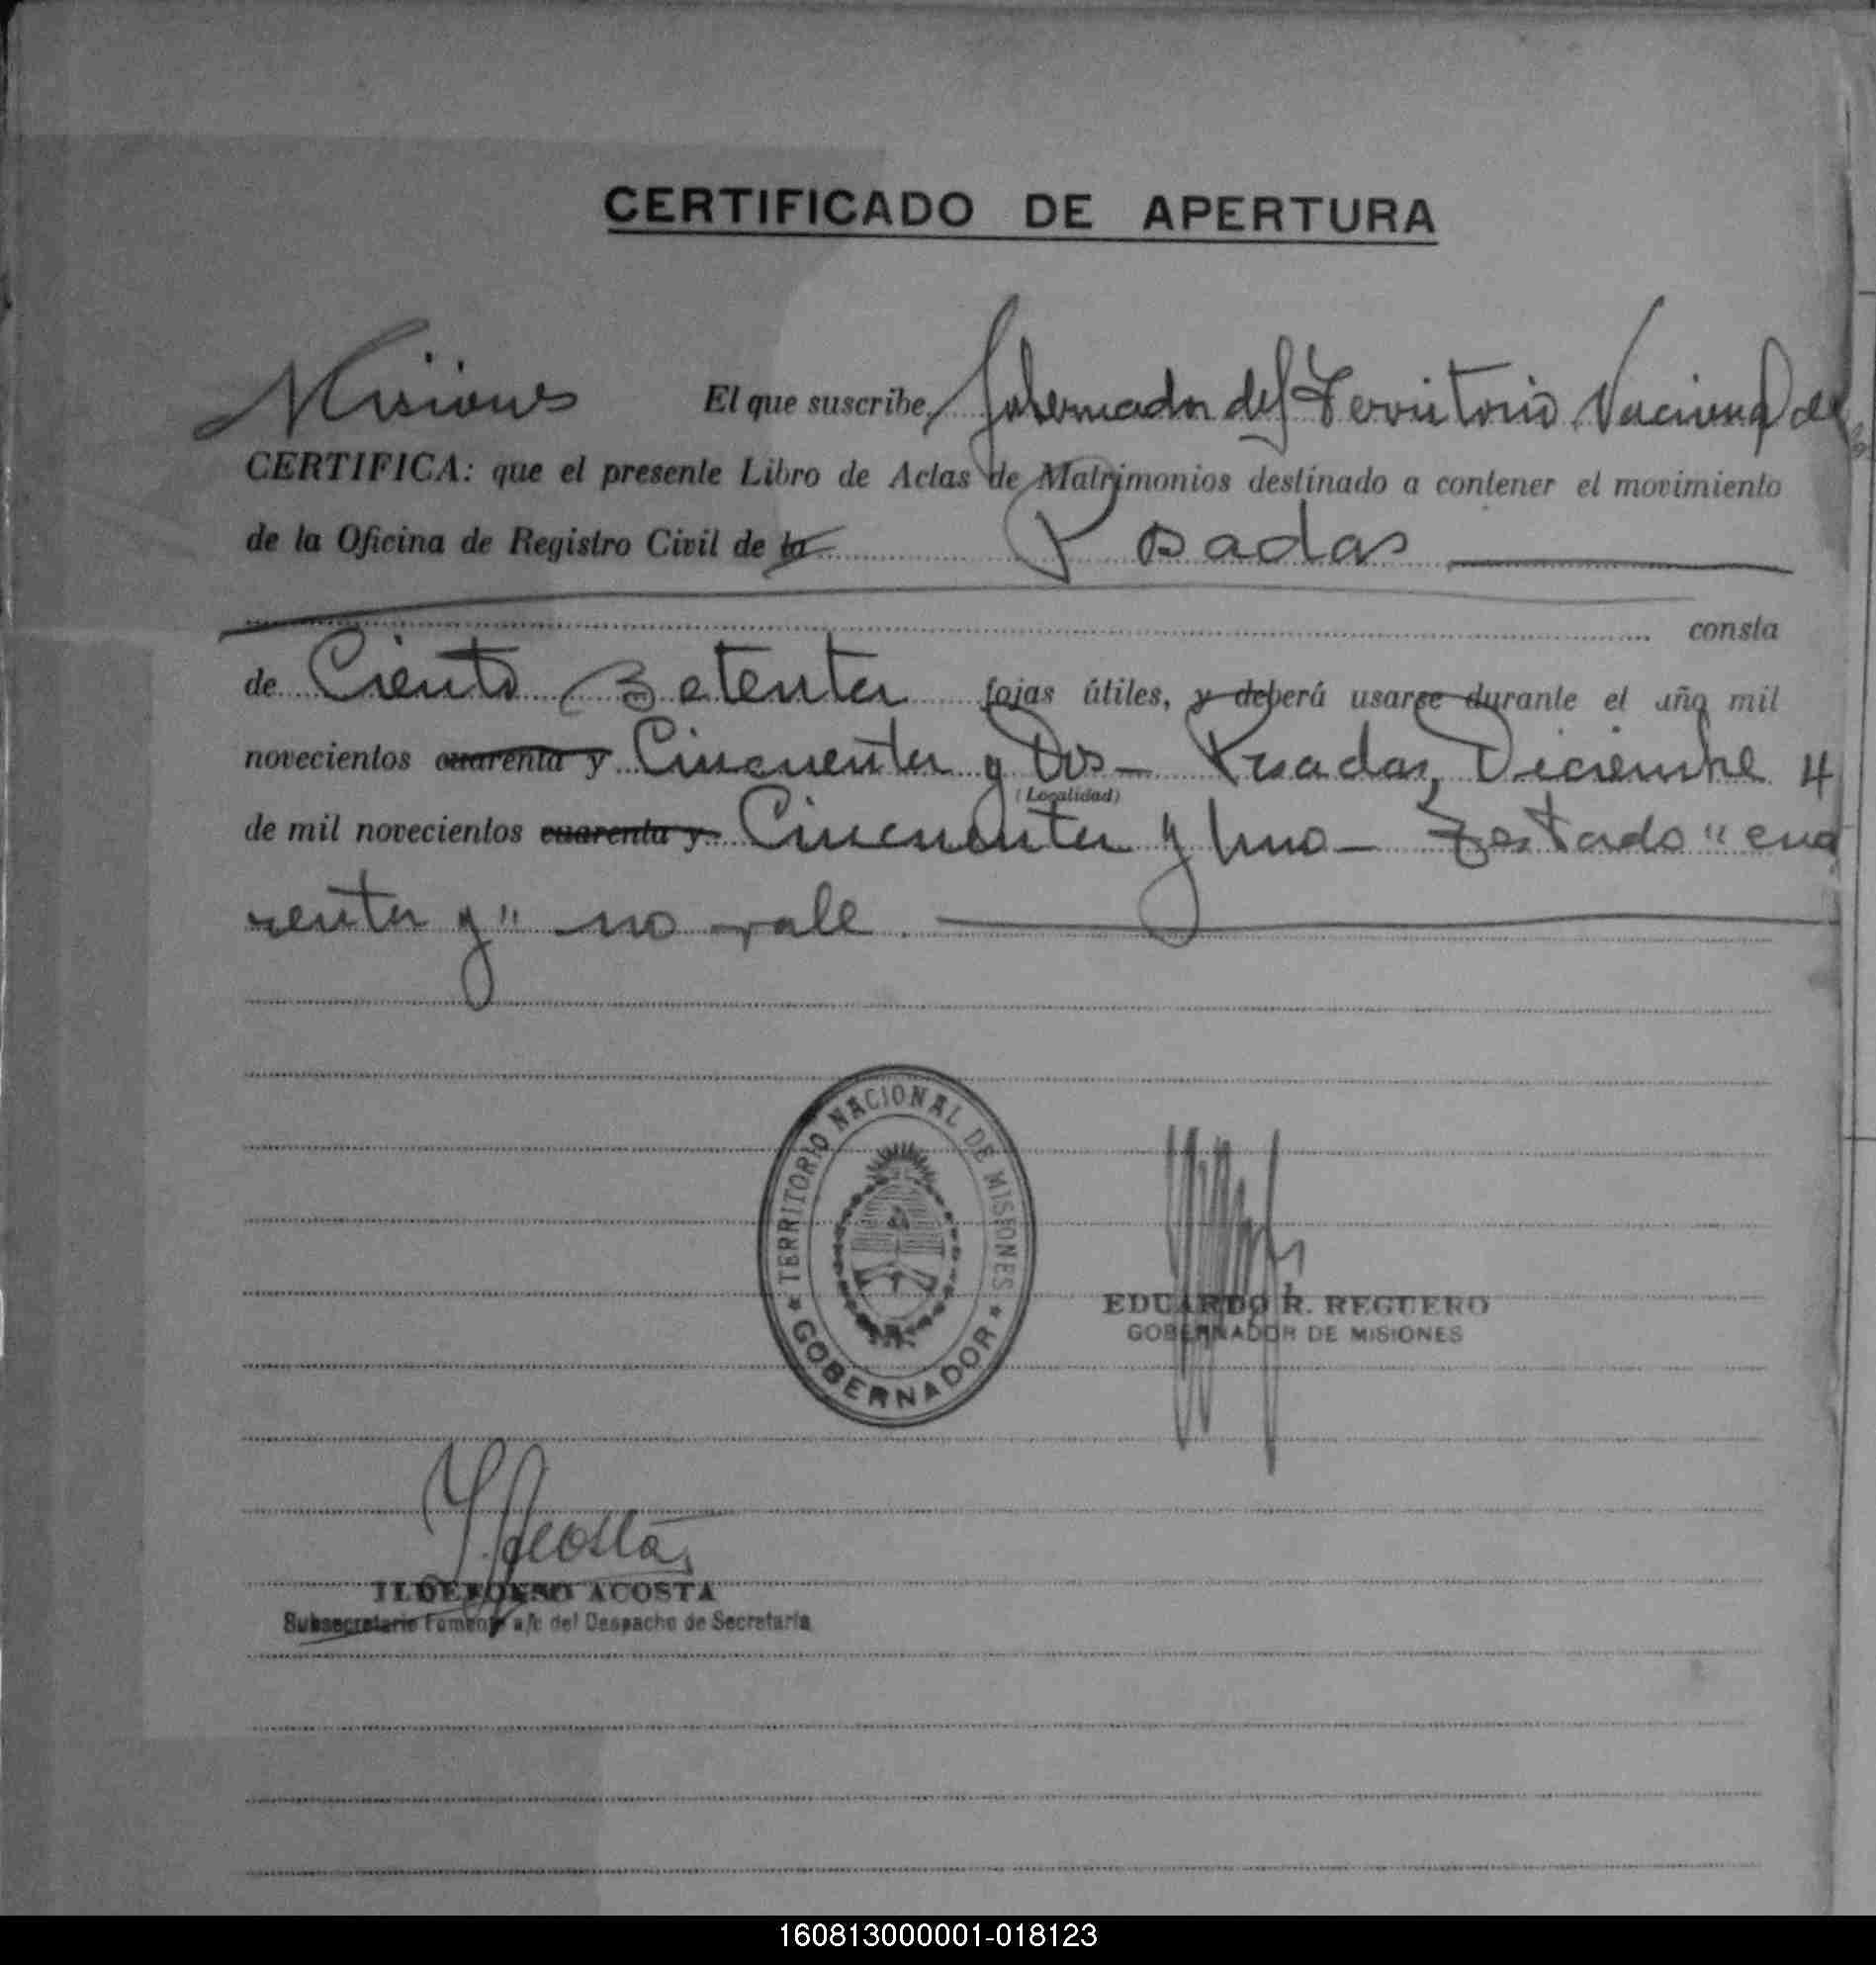 CERTIFICADO DE APERTURA
El que suscribe, Gobernador del Territorio Nacional de
Misiones
CERTIFICA: que el presente Libro de Actas de Matrimonios destinado a contener el movimiento
de la Oficina de Registro Civil de la Posadas
consta
de Ciento Setenta fojas útiles, y deberá usarse durante el año mil
novecientos cuarenta y Cincuenta y Dos - Posadas, Diciembre 4
(Localidad)
de mil novecientos cuarenta y Cincuenta y Uno - Testado "cua
renta y" no vale.
TERRITORIO NACIONAL DE MISIONES
GOBERNADOR
EDUARDO R. REGUERO
GOBERNADOR DE MISIONES
I. Acosta
ILDEFONSO ACOSTA
Subsecretario Fomento a/c del Despacho de Secretaría
160813000001-018123